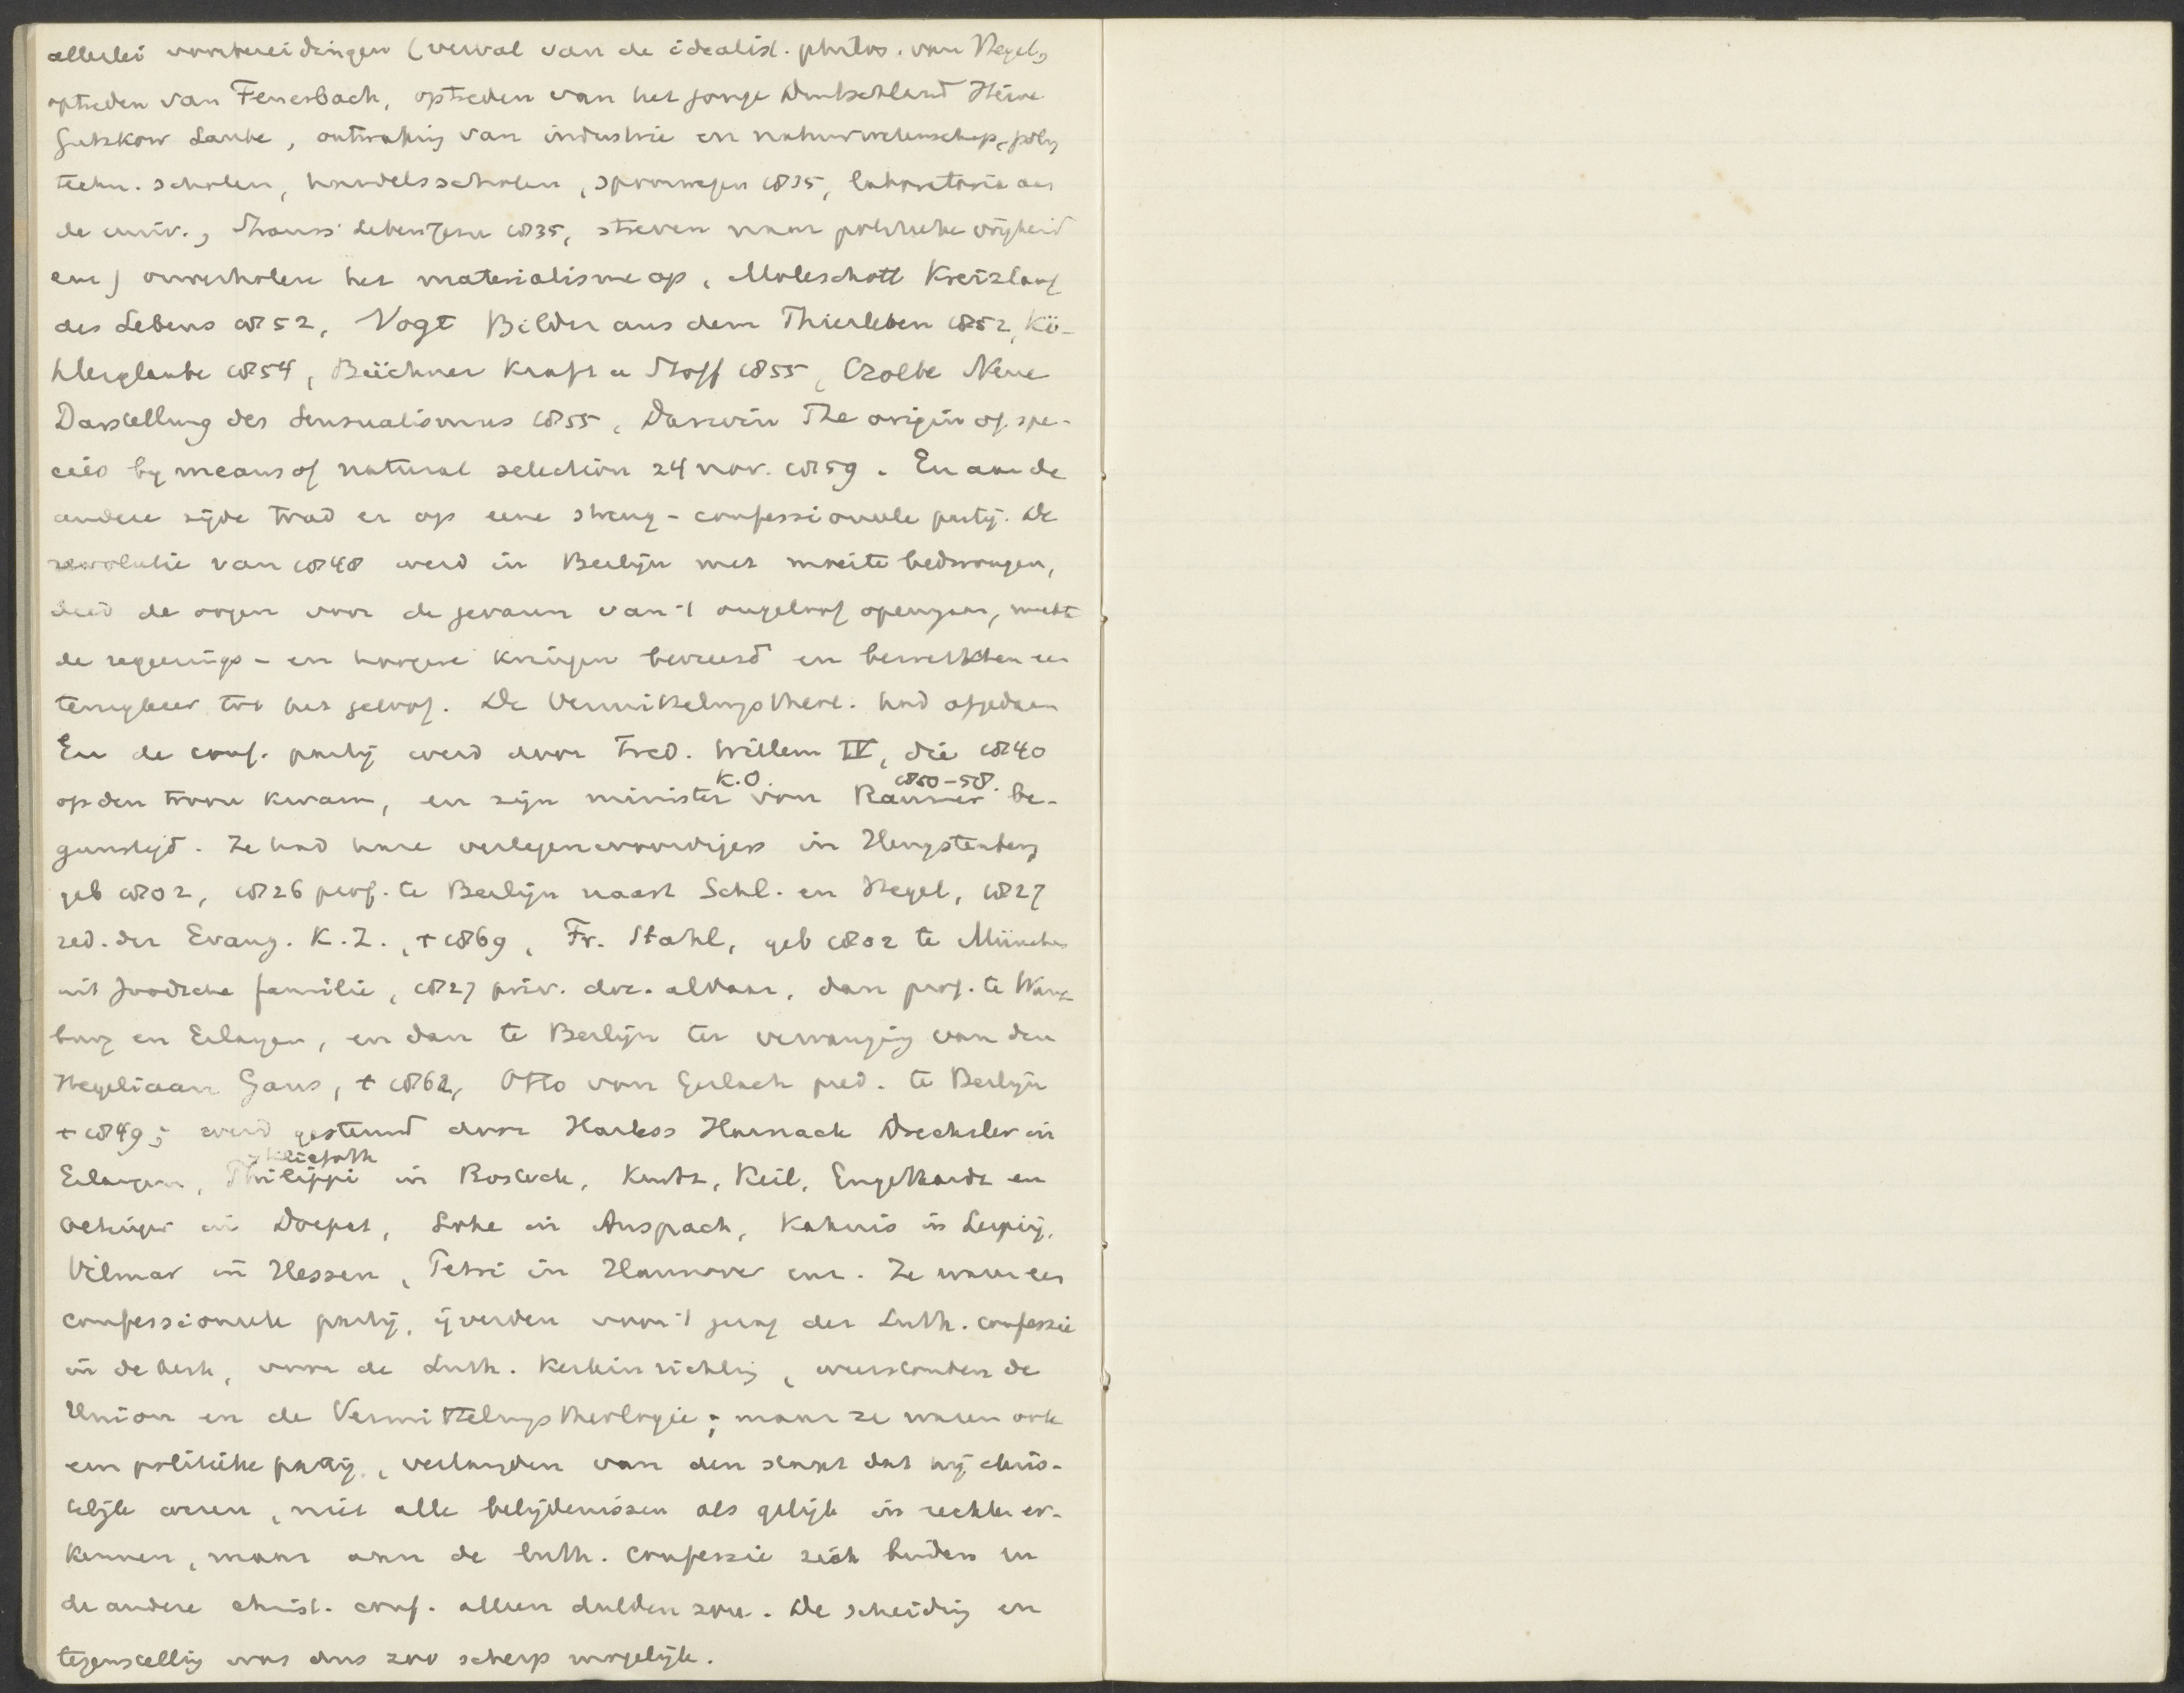 allerlei voorbereidingen (verval van de idealist. philos. van Hegel,
optreden van Feuerbach, optreden van het jonge Duitschland Heine
Gutzkow Laube, ontwakig van industrie en natuurwetenschap, poly
techn. scholen, handelsscholen, spoorwegen 1835, laboratoria aan
de univ., Strauss' Leben Jesu 1835, streven naar politieke vrijheid
enz) onverholen het materialisme op, Moleschott Kreislauf
des Lebens 1852, Vogt Bilder aus dem Thierleben 1852, Kö-
hlerglaube 1854, Büchner Kraft u Stoff 1855, Czolbe Neue
Darstellung des Sensualismus 1855, Darwin The origin of spe-
cies by means of natural selection 24 nov. 1859. En aan de
andere zijde trad er op eene streng-confessioneele partij. De
revolutie van 1848 werd in Berlijn met moeite bedwongen,
deed de oogen voor de gevaren van 't ongeloof opengaan, maakte
de regeerings- en hoogere kringen bevreesd en bewerkten een
terugkeer tot het geloof. De Vermittelungstheol. had afgedaan
En de conf. partij werd door Fred. Willem IV, die 1840
op den troon kwam, en zijn minister K.O. von Raumer 1850-58. be-
gunstigd. Ze had hare vertegenwoordigers in Hengstenberg
geb 1802, 1826 prof. te Berlijn naast Schl. en Hegel, 1827
red. der Evang. K.Z., + 1869, Fr. Stahl, geb 1802 te München
uit Joodsche familie, 1827 priv. doc. aldaar, dan prof. te Würz-
burg en Erlangen, en dan te Berlijn ter vervanging van den
Hegeliaan Gans, + 1862, Otto von Gerlach pred. te Berlijn
+ 1849; werd gesteund door Harless Harnack Drechsler in
Erlangen, Philippi Kliefoth in Rostock, Kurtz, Keil, Engelhardt en
Oettingen in Dorpat, Löhe in Anspach, Kahnis in Leipzig,
Vilmar in Hessen, Petri in Hannover enz. Ze waren een
confessioneele partij, ijverden voor 't gezag der Luth. confessie
in de kerk, voor de Luth. Kerkinrichtig, weerstonden de
Union en de Vermittelungstheologie; maar ze waren ook
een politieke partij, verlangden van den staat dat hij chris-
telijk ware, niet alle belijdenissen als gelijk in rechten er-
kennen, maar aan de luth. confessie zich binden en
de andere christ. conf. alleen dulden zou. De scheidig en
tegenstellig was dus zoo scherp mogelijk.